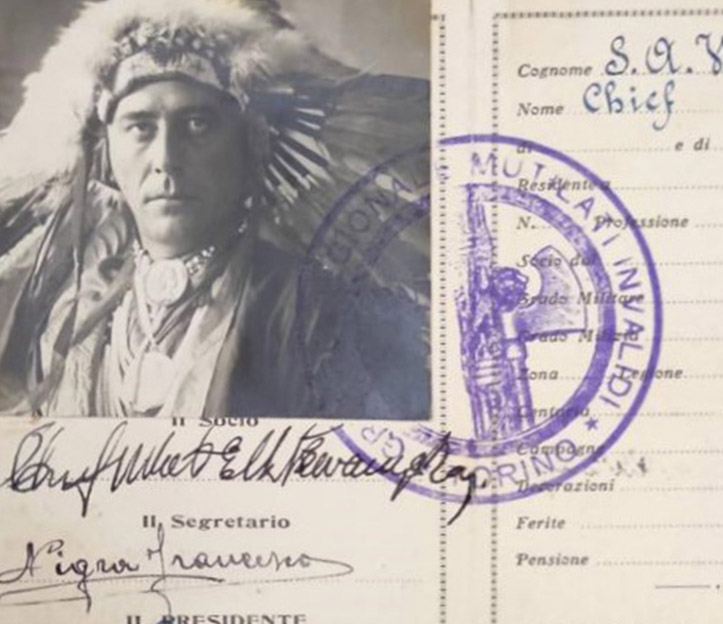 Il Socio
Chief White Elk Ray.
Il Segretario
Nigra Francesco
IL PRESIDENTE
Cognome S. A.
Nome Chief
di e di
Residente a
N. Professione
Socio dal
Grado Militare
Grado Milizia
Zona Legione
Centuria
Campagne
Decorazioni
Ferite
Pensione
MUTILATI INVALIDI ★ TORINO